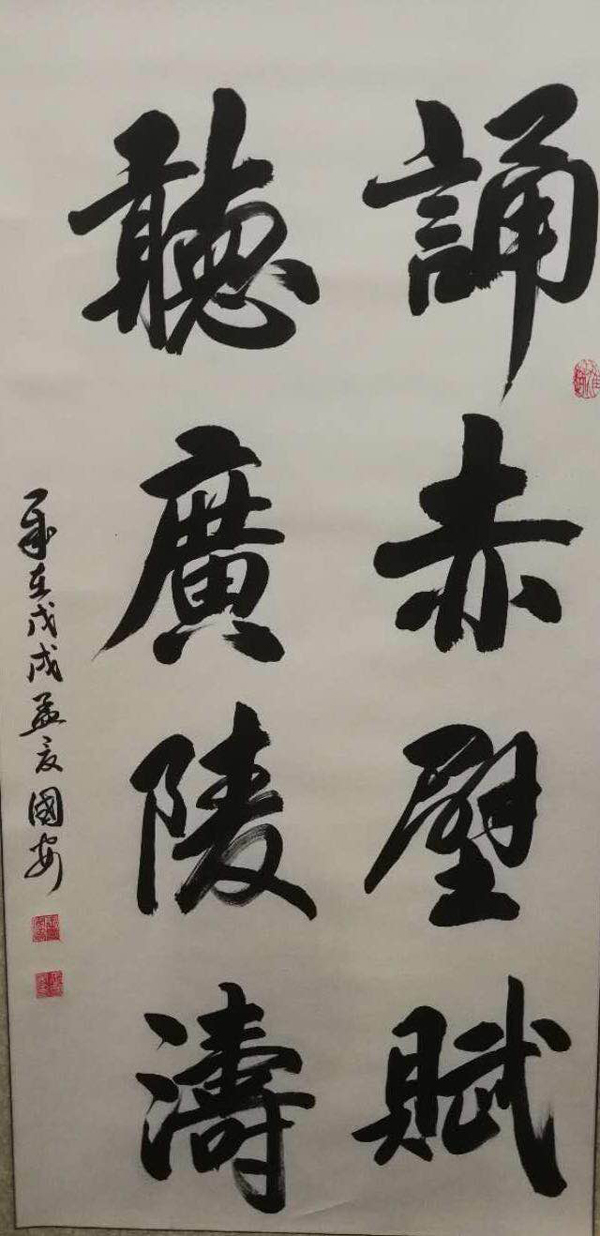 誦赤壁賦
聽廣陵濤
歲在戊戌孟夏國安